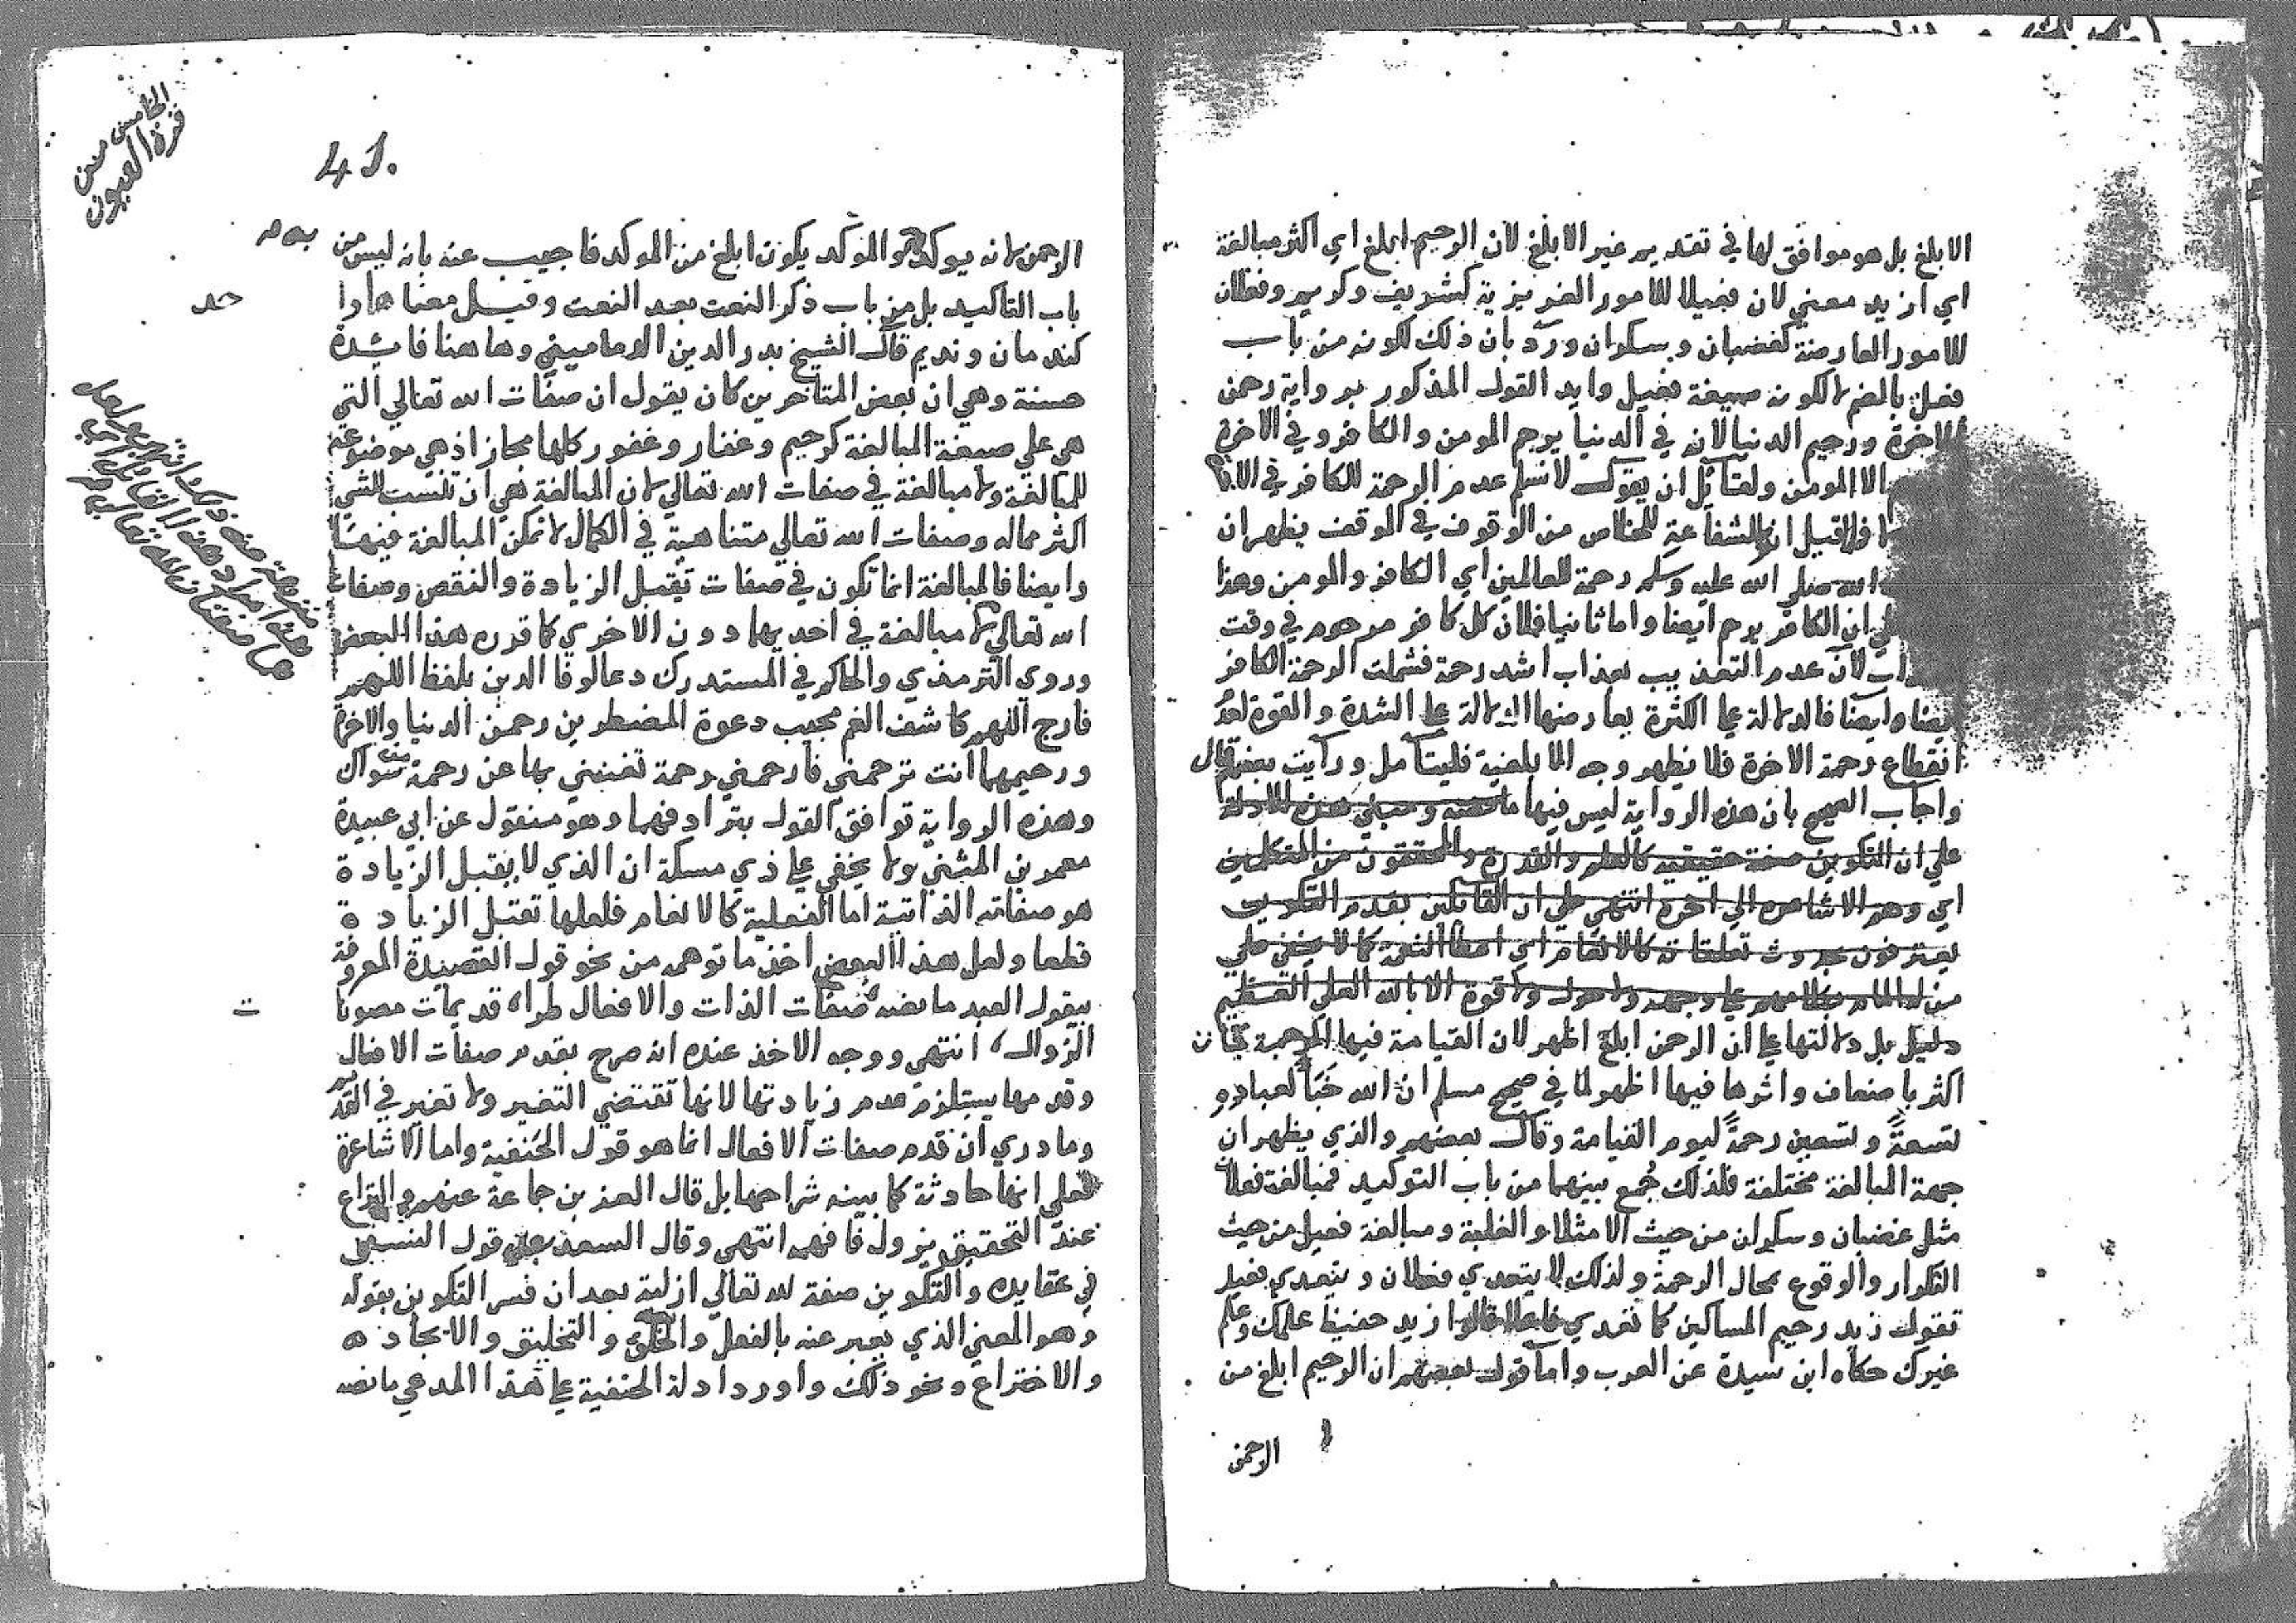 الابلغ بل هو موافق لها في تقديم غير الابلغ لان الرحيم ابلغ اي اكثر مبالغة
اي ازيد معني لان فعيلا للامور الغريزية كشريف وكريم وفعلان
للامور العارضة كغضبان وسكران ورد بان ذلك لكونه من باب
فعل بالضم لا لكونه صيغة فعيل وايد القول المذكور برواية رحمن
الاخرة ورحيم الدنيا لانه في الدنيا يرحم المومن والكافر وفي الاخرة
الا المومن ولقائل ان يقول لا نسلم عدم الرحمة للكافر في الاخرة
فلما قيل ان الشفاعة للخلاص من الوقوف في الموقف يظهر ان
الله صلي الله عليه وسلم رحمة للعالمين اي الكافر والمومن وهذا
ان الكافر يرحم ايضا واما ثانيا فلان كل كافر مرحوم في وقت
لان عدم التعذيب بعذاب اشد رحمة فشملت الرحمة الكافر
ايضا وايضا فالدلالة علي الكثرة يعارضها الدلالة علي الشدة والقوة لعدم
انقطاع رحمة الاخرة فلا يظهر وجه الابلغية فليتامل ورايت بعضهم قال
واجاب الصحيح بان هذه الرواية ليس فيها ما نصه ومبني هذه الادلة
علي ان التكوين صفة حقيقية كالعلم والقدرة والمحققون من المتكلمين
اي وهم الاشاعره الي اخره انتهي علي ان القائلين بقدم التكوين
يعترفون بحدوث تعلقاته كالانعام اي اعطا النعمة كما لا يخفي علي
من له المام بكلامهم علي وجهه ولا حول ولا قوة الا بالله العلي العظيم
دليل بل دلالتها علي ان الرحمن ابلغ اظهر لان القيامة فيها الرحمة
اكثر باضعاف واثرها فيها اظهر لما في صحيح مسلم ان الله خَبَأ لعباده
تسعةً وتسعين رحمةً ليوم القيامة وقال بعضهم والذي يظهر ان
جهة المبالغة مختلفة فلذلك جُمع بينهما من باب التوكيد فمبالغة فعلان
مثل غضبان وسكران من حيث الامتلا والغلبة ومبالغة فعيل من حيث
التكرار والوقوع بمحال الرحمة ولذلك لا يتعدي فعلان ويتعدي فعيل
تقول زيد رحيم المساكين كما تعدي فاعلا قالوا زيد حفيظ علمك وعلم
غيرك حكاه ابن سيدة عن العرب واما قول بعضهم ان الرحيم ابلغ من
الرحمن
الخامس من
قرة العيون
41.
الرحمن لانه يوكده والموكد يكون ابلغ من الموكد فاجيب عنه بانه ليس من
باب التاكيد بل من باب ذكر النعت بعد النعت وقيل معناهما واحد
كندمان ونديم قال الشيخ بدر الدين الدماميني وهاهنا فائدة
حسنة وهي ان بعض المتاخرين كان يقول ان صفات الله تعالي التي
هي علي صيغة المبالغة كرحيم وغفار وغفور كلها مجاز اذ هي موضوعة
للمبالغة ولا مبالغة في صفات الله تعالي لان المبالغة هي ان تنسب للشي
اكثر مماله وصفات الله تعالي متناهية في الكمال لا تمكن المبالغة فيها
وايضا فالمبالغة انما تكون في صفات تقبل الزيادة والنقص وصفات
الله تعالي لا مبالغة في احديهما دون الاخري كما قرره هذا البعض
وروي الترمذي والحاكم في المستدرك دعا لوفا الدين بلفظ اللهم
فارج الهم كاشف الغم مجيب دعوة المضطرين رحمن الدنيا والاخرة
ورحيمهما انت ترحمني فارحمني رحمة تغنيني بها عن رحمة من سواك
وهذه الرواية توافق القول بترادفهما وهو منقول عن ابي عبيدة
معمر بن المثني ولا يخفي علي ذي مسكة ان الذي لا يقبل الزيادة
هو صفاته الذاتية اما الفعلية كالانعام فلعلها تقبل الزيادة
قطعا ولعل هذا البعض اخذ ما توهمه من نحو قول القصيدة المعروفة
بيقول العبد ما نصه صفات الذات والافعال طرا، قديمات مصونات
الزوال، انتهي ووجه الاخذ عنده انه صرح بقدم صفات الافعال
وقدمها يستلزم عدم زيادتها لانها تقتضي التغير ولا تغير في القديم
وما دري ان قدم صفات الافعال انما هو قول الحنفية واما الاشاعرة
فعلي انها حادثة كما بينه شراحها بل قال العز بن جماعة عنهم والنزاع
عند التحقيق يزول فافهم انتهي وقال السعد علي قول النسفي
في عقايده والتكوين صفة لله تعالي ازلية بعد ان فسر التكوين بقوله
وهو المعني الذي يعبر عنه بالفعل والخلق والتخليق والايجاد
والاختراع ونحو ذلك واورد ادلة الحنفية علي هذا المدعي ما نصه